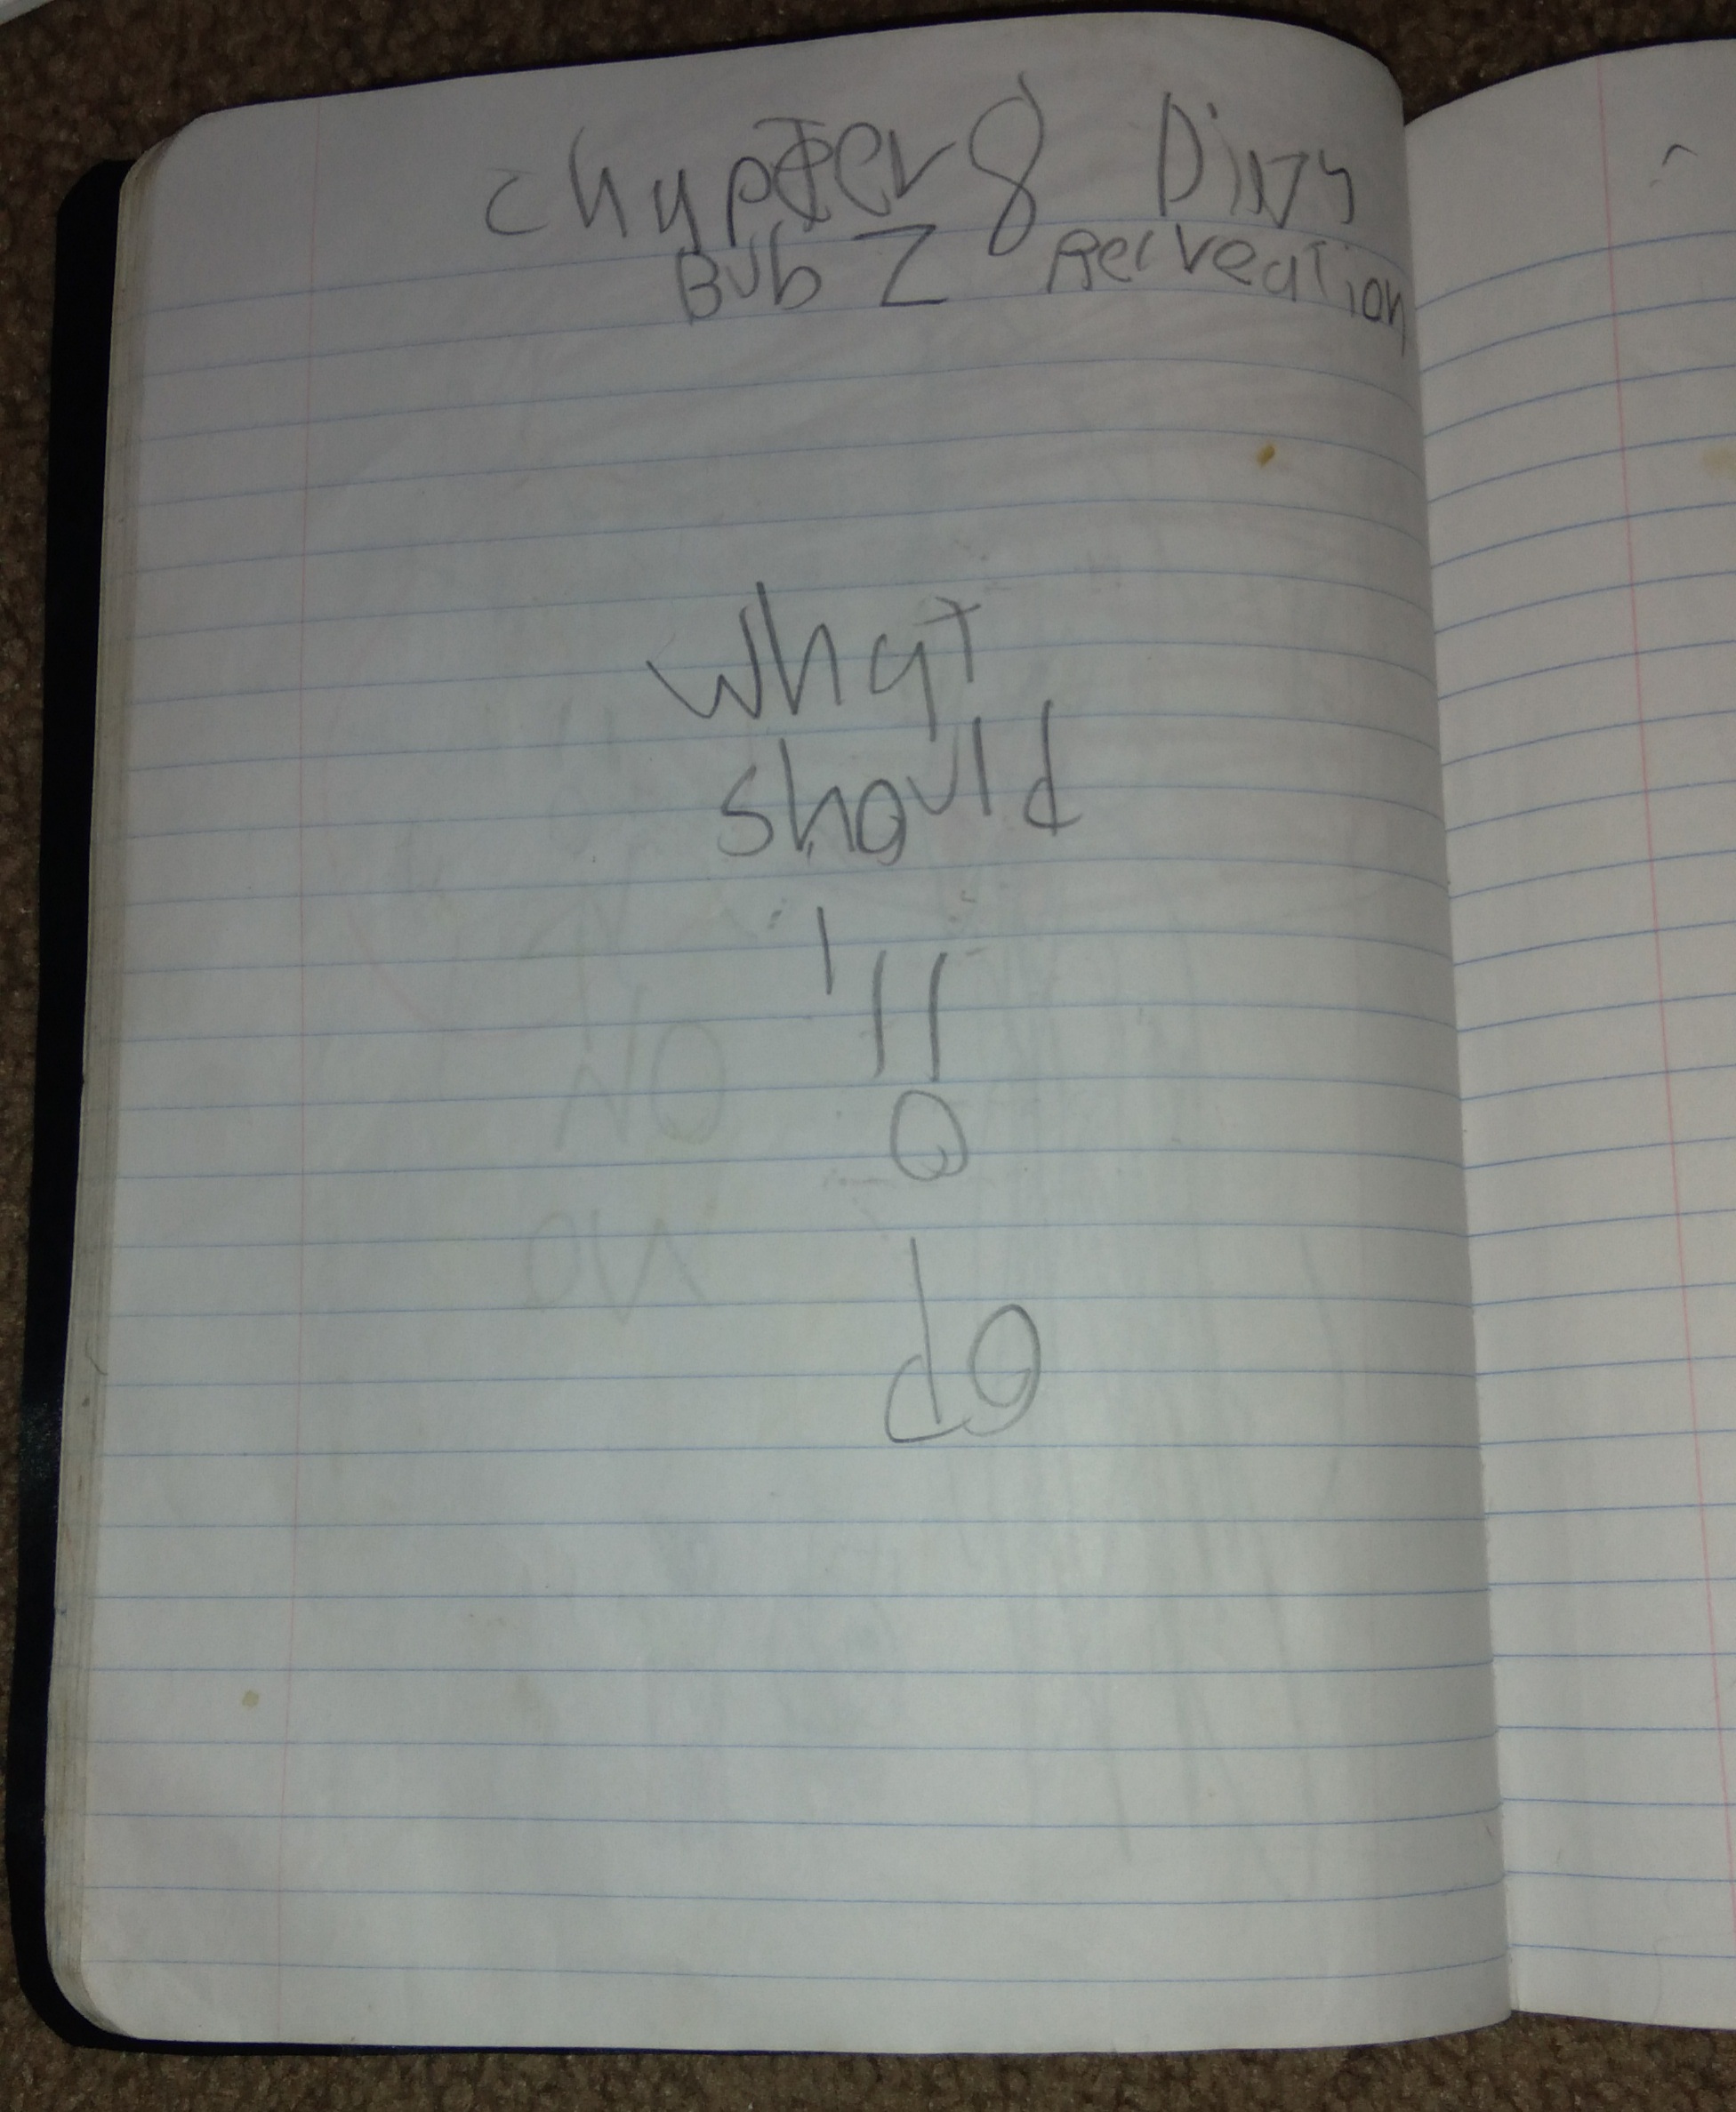 Chypter 8 Dirty
Bub Z Relveation
What
should
I'll
O
do